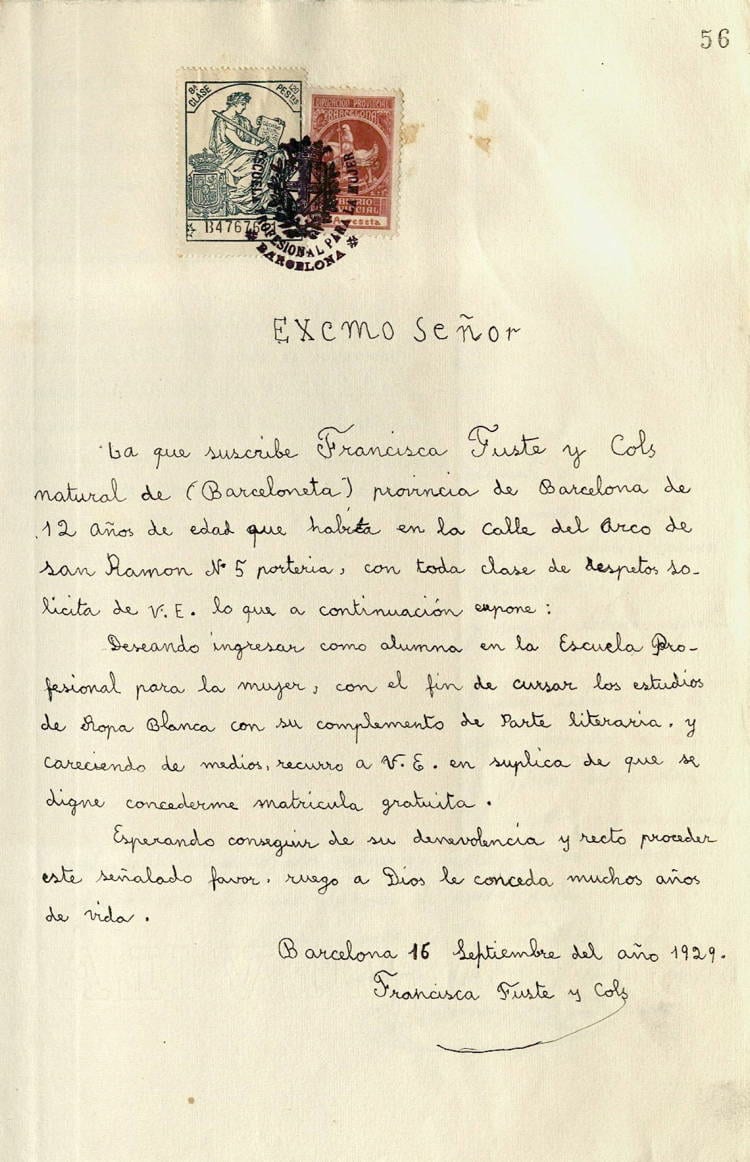 56
8ª CLASE
120 PESTAS
DIPUTACION PROVINCIAL
BARCELONA
B47676
PESETA
ESCUELA PROFESIONAL PARA LA MUJER
* BARCELONA *
EXCMO Señor
La que suscribe Francisca Fuste y Cols
natural de (Barceloneta) provincia de Barcelona de
12 años de edad que habita en la calle del Arco de
san Ramon Nº 5 porteria, con toda clase de despetos so-
licita de V.E. lo que a continuación expone:
Deseando ingresar como alumna en la Escuela Pro-
fesional para la mujer, con el fin de cursar los estudios
de Ropa Blanca con su complemento de Parte literaria. y
careciendo de medios, recurro a V.E. en suplica de que se
digne concederme matrícula gratuita.
Esperando conseguir de su denevolencia y recto proceder
este señalado favor. ruego a Dios le conceda muchos años
de vida.
Barcelona 16 Septiembre del año 1929.
Francisca Fuste y Cols